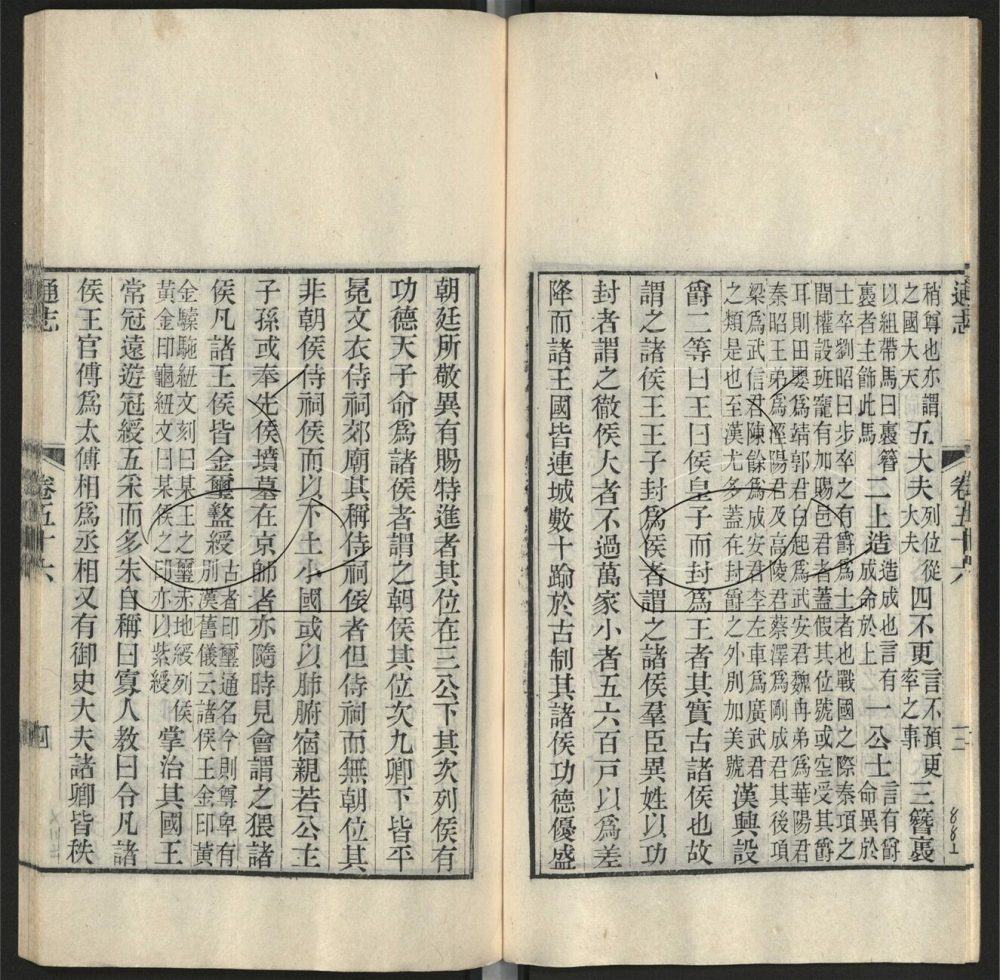 通志
卷五十六
十二
881
稍尊也亦謂之國大夫
五大夫
列位從大夫
四不更
言不預更率之事
三簪褭
以組帶馬曰褭簪褭者主飾此馬
二上造
造成也言有成命於上
一公士
言有爵命異於
士卒劉昭曰步卒之有爵爲士者也戰國之際秦項之
間權設班寵有加賜邑君者蓋假其位號或空受其爵
耳則田嬰爲靖郭君白起爲武安君魏冉弟爲華陽君
秦昭王弟爲涇陽君及高陵君蔡澤爲剛成君其後項
梁爲武信君陳餘爲成安君李左車爲廣武君
之類是也至漢尤多蓋在封爵之外別加美號
漢興設
爵二等曰王曰侯皇子而封爲王者其實古諸侯也故
謂之諸侯王王子封爲侯者謂之諸侯羣臣異姓以功
封者謂之徹侯大者不過萬家小者五六百戸以爲差
降而諸王國皆連城數十踰於古制其諸侯功德優盛
朝廷所敬異有賜特進者其位在三公下其次列侯有
功德天子命爲諸侯者謂之朝侯其位次九卿下皆平
冕文衣侍祠郊廟其稱侍祠侯者但侍祠而無朝位其
非朝侯侍祠侯而以下土小國或以肺腑宿親若公主
子孫或奉先侯墳墓在京師者亦隨時見會謂之猥諸
侯凡諸王侯皆金璽盭綬
古者印璽通名今則尊卑有別漢舊儀云諸侯王金印黃
金橐駞紐文刻曰某王之璽赤地綬列侯
黃金印龜紐文曰某侯之印亦以紫綬
掌治其國王
常冠遠遊冠綬五采而多朱自稱曰寡人教曰令凡諸
侯王官傅爲太傅相爲丞相又有御史大夫諸卿皆秩
通志
卷五十六